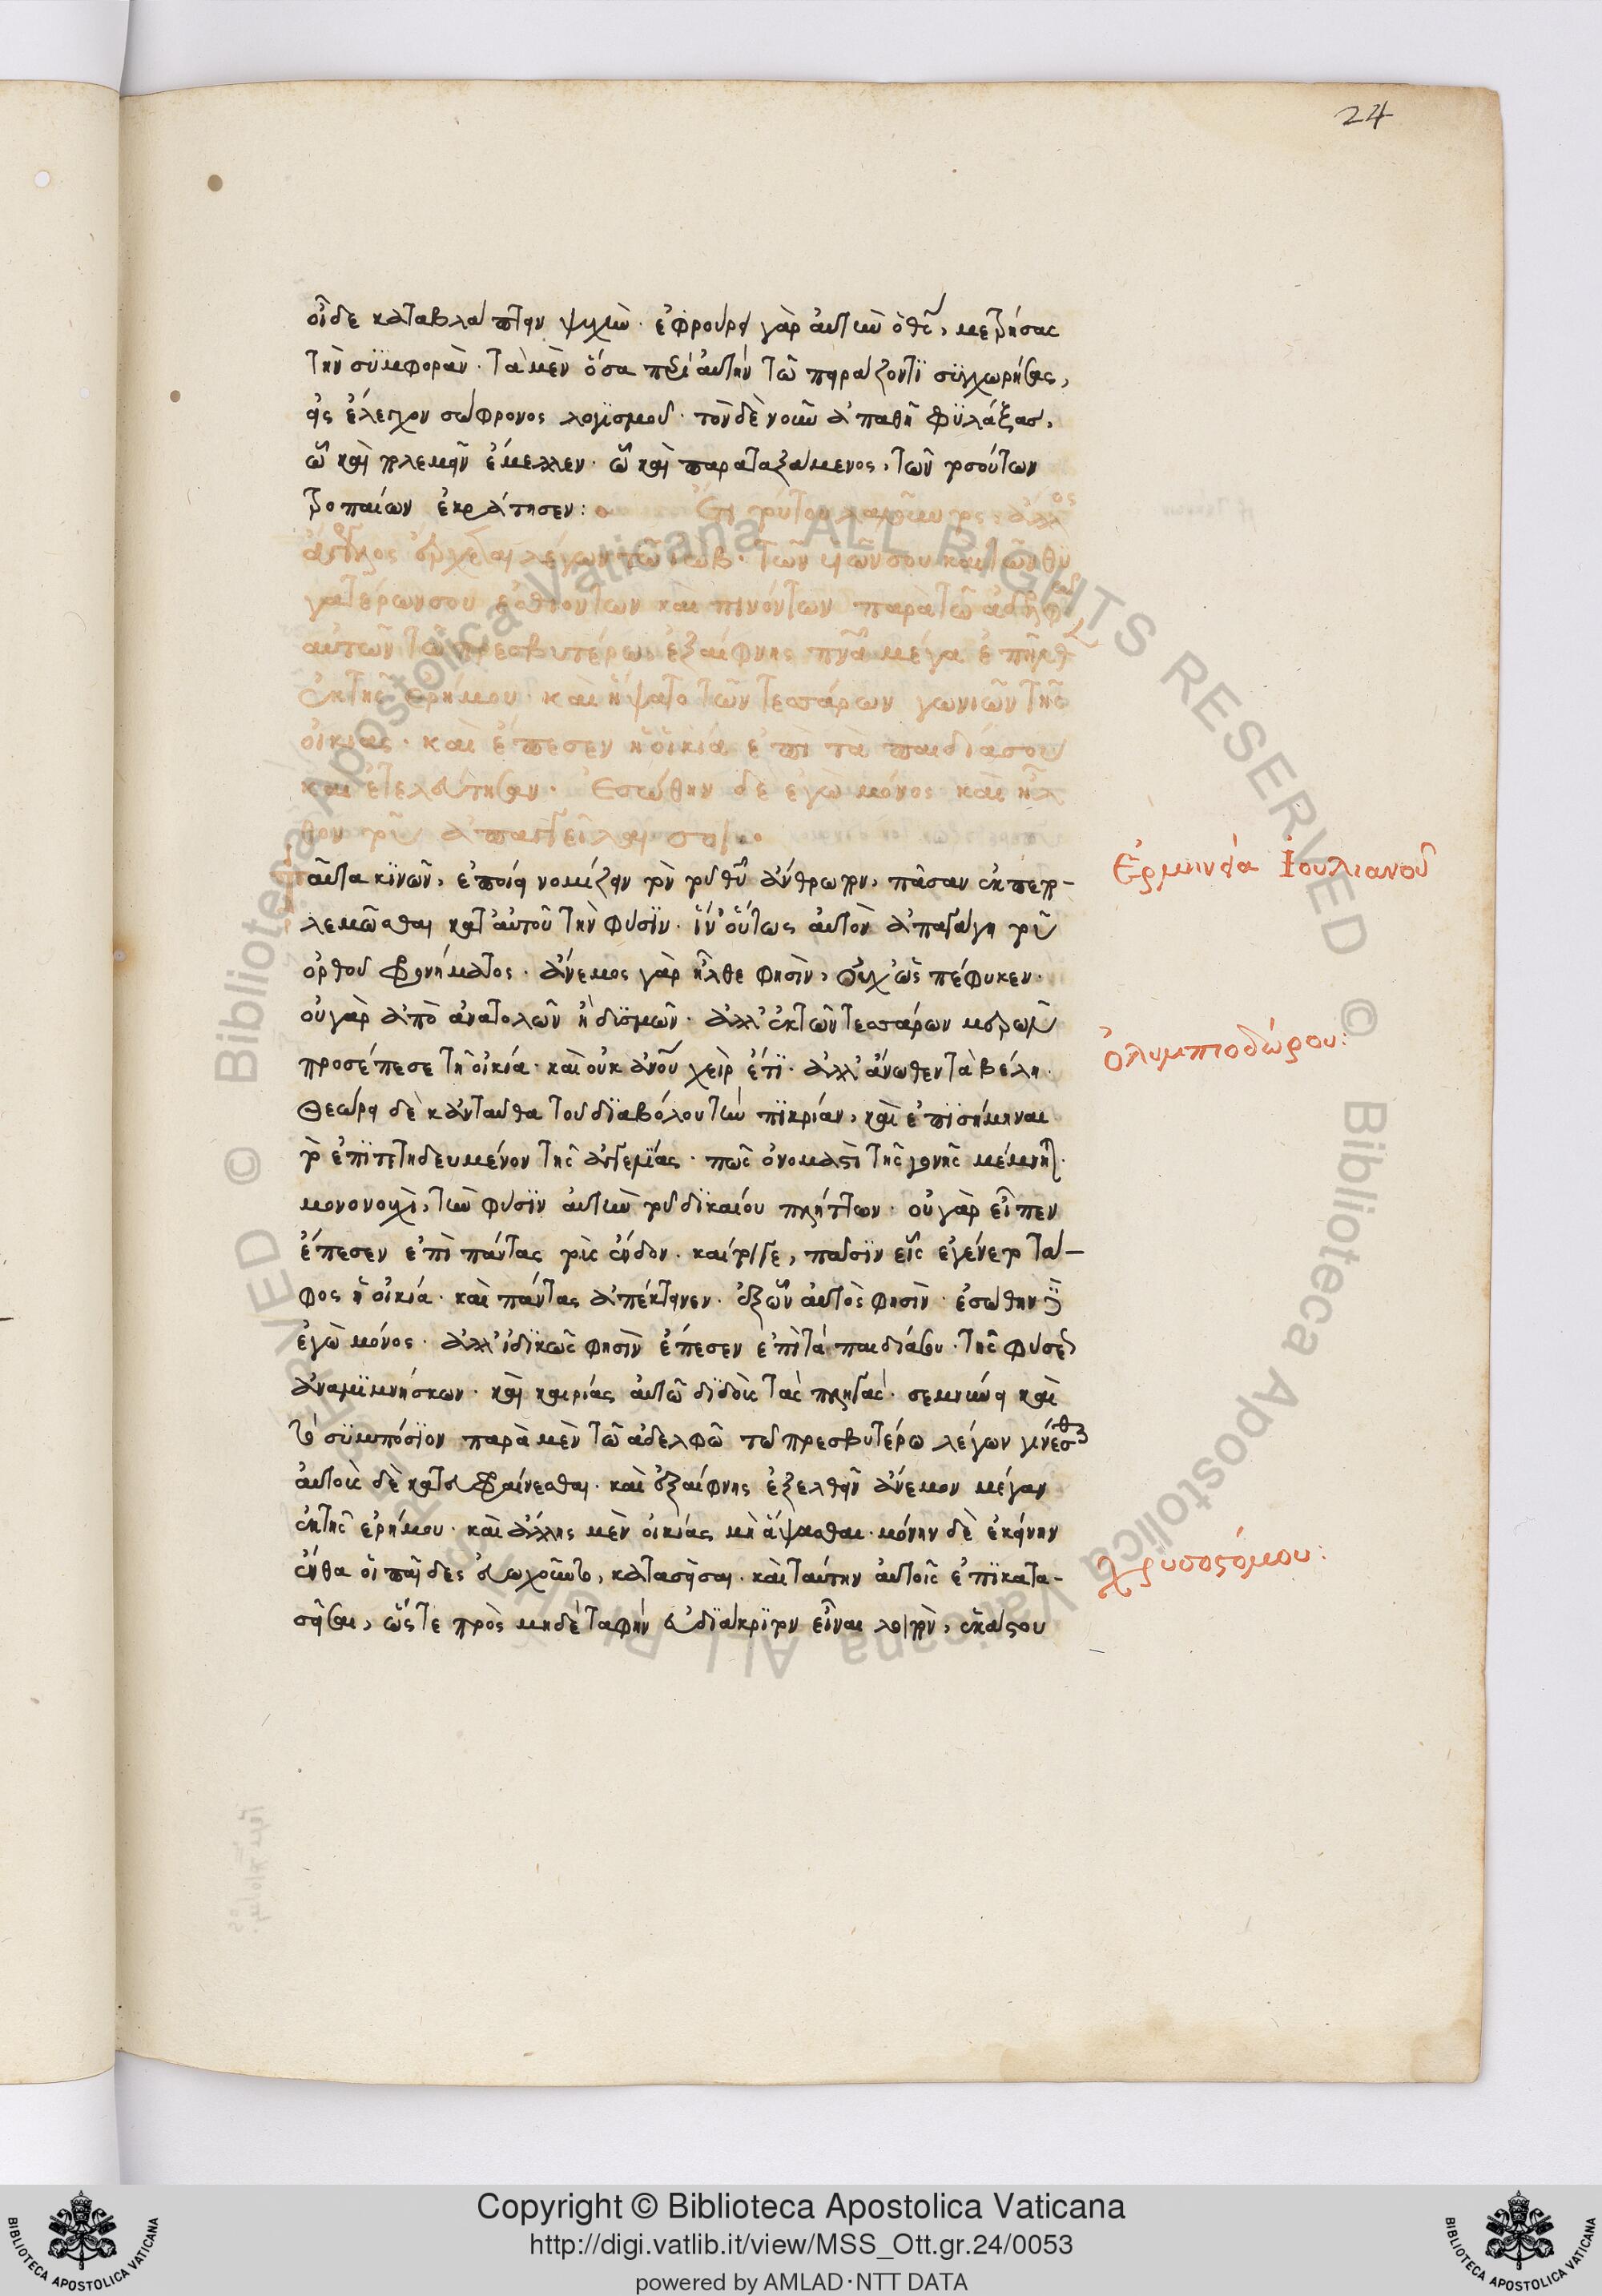 24
οἶδε καταβλάπτειν ψυχὴν· ἐφρούρει γὰρ αὐτὴν ὁ θς̃, μετρήσας
τὴν συμφοράν· τὰ μὲν ὅσα περὶ αὐτὴν τῶ πειράζοντι συγχωρήσας,
εἰς ἔλεγχον σώφρονος λογισμοῦ· τὸν δὲ νοῦν ἀπαθῆ φυλάξας,
ὧ καὶ πολεμεῖν ἔμελλεν· ὧ καὶ παραταξάμενος, τῶν τοσούτων
τροπαίων ἐκράτησεν:
Ἔτι τούτου λαλοῦντος ἄλλος
ἄγγελος ἔρχεται λέγων τῶ ἰώβ· τῶν υἱῶν σου καὶ τῶν θυ
γατέρων σου ἐσθιόντων καὶ πινόντων παρὰ τῶ ἀδελφῶ
αὐτῶν τῶ πρεσβυτέρω, ἐξαίφνης πνᾶ μέγα ἐπῆλθ
ἐκ τῆς ἐρήμου· καὶ ἥψατο τῶν τεσσάρων γωνιῶν τῆς
οἰκίας· καὶ ἔπεσεν ἡ οἰκία ἐπὶ τὰ παιδία σου
καὶ ἐτελεύτησαν· Ἐσώθην δὲ ἐγὼ μόνος καὶ ἦλ
θον τοῦ ἀπαγγεῖλαί σοι:
Ἑρμηνεία Ἰουλιανοῦ
ταῦτα κινῶν, ἐποίει νομίζειν τὸν τοῦ θῦ ἄνθρωπον, πᾶσαν ἐκπεπο-
λεμῶσθαι κατ' αὐτοῦ τὴν φύσιν· ἵν' οὕτως αὐτὸν ἀπαγάγη τοῦ
ὀρθοῦ φρονήματος· ἄνεμος γὰρ ἦλθε φησὶν, οὐχ' ὡς πέφυκεν·
οὐ γὰρ ἀπὸ ἀνατολῶν ἢ δυσμῶν· ἀλλ' ἐκ τῶν τεσσάρων μερῶν
προσέπεσε τῆ οἰκία· καὶ οὐκ ἀνοῦ χεὶρ ἔτι· ἀλλ' ἄνωθεν τὰ βέλη·
ὀλυμπιοδώρου:
Θεώρει δὲ κἀνταῦθα τοῦ διαβόλου τὴν πικρίαν, καὶ ἐπισήμηναι
τὸ ἐπιτετηδευμένον τῆς ἀγγελίας· πῶς ὀνομαστὶ τῆς γονῆς μέμνηται·
μονονουχὶ, τὴν φύσιν αὐτὴν τοῦ δικαίου πλήττων· οὐ γὰρ εἶπεν
ἔπεσεν ἐπὶ πάντας τοὺς ἔνδον· καίτοιγε, πᾶσιν εἷς ἐγένετο τά-
φος ἡ οἰκία· καὶ πάντας ἀπέκτεινεν· ἐξ ὧν αὐτὸς φησὶν· ἐσώθην δὲ
ἐγὼ μόνος· ἀλλ' ἰδικῶς φησὶν ἔπεσεν ἐπὶ τὰ παιδία σου· τῆς φύσεως
ἀναμιμνήσκων· καὶ καιρίας αὐτῶ διδοὺς τὰς πληγάς· σεμνύνει καὶ
τὸ συμπόσιον παρὰ μὲν τῶ ἀδελφῶ τῶ πρεσβυτέρω λέγων γίνεσθαι
αὐτοὺς δὲ κατευφραίνεσθαι· καὶ ἐξαίφνης ἐξελθεῖν ἄνεμον μέγαν
ἐκ τῆς ἐρήμου· καὶ ἄλλης μὲν οἰκίας μὴ ἅψασθαι· μόνην δὲ ἐκείνην
Χρυσοστόμου:
ἔνθα οἱ παῖδες εὐωχοῦντο, κατασεῖσαι· καὶ ταύτην αὐτοῖς ἐπικατα-
σεῖσαι, ὥστε πρὸς μηδὲ ταφὴν εὐδιάκριτον εἶναι λοιπὸν, ἑκάστου
Copyright © Biblioteca Apostolica Vaticana
http://digi.vatlib.it/view/MSS_Ott.gr.24/0053
powered by AMLAD·NTT DATA